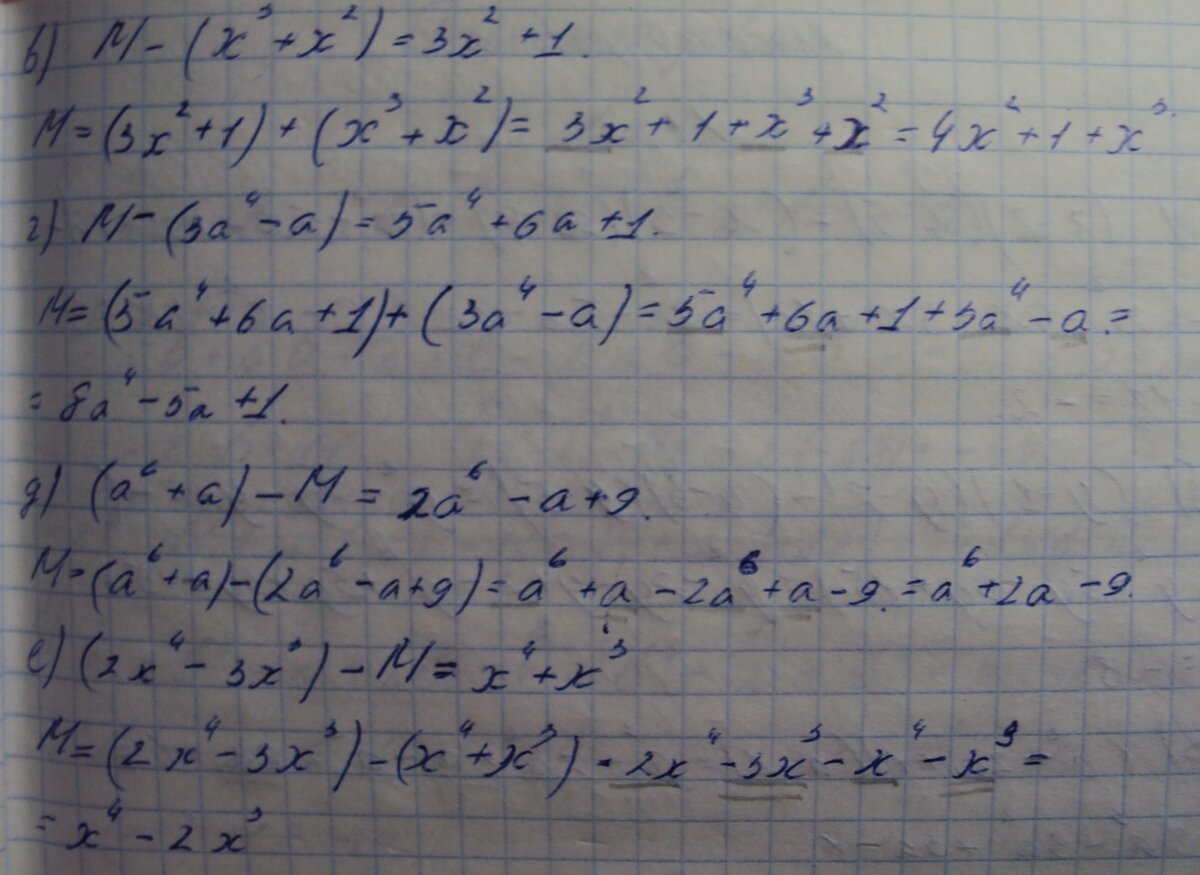 в) M - (x³ + x²) = 3x² + 1.
M = (3x² + 1) + (x³ + x²) = 3x² + 1 + x³ + x² = 4x² + 1 + x³.
г) M - (3a⁴ - a) = 5a⁴ + 6a + 1.
M = (5a⁴ + 6a + 1) + (3a⁴ - a) = 5a⁴ + 6a + 1 + 3a⁴ - a =
= 8a⁴ - 5a + 1.
д) (a⁶ + a) - M = 2a⁶ - a + 9.
M = (a⁶ + a) - (2a⁶ - a + 9) = a⁶ + a - 2a⁶ + a - 9. = a⁶ + 2a - 9.
е) (2x⁴ - 3x³) - M = x⁴ + x³
M = (2x⁴ - 3x³) - (x⁴ + x³) = 2x⁴ - 3x³ - x⁴ - x³ =
= x⁴ - 2x³